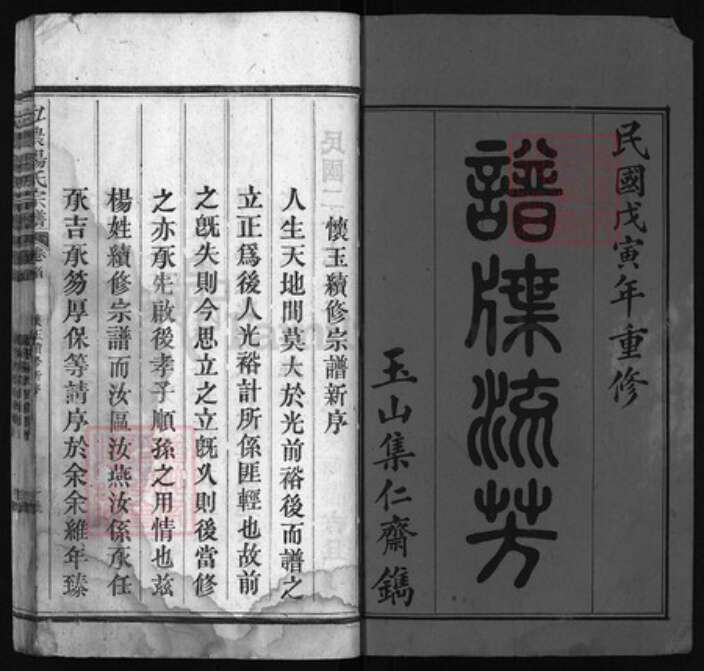 民國戊寅年重修
譜牒流芳
玉山集仁齋鐫
懷玉續修宗譜新序
人生天地間莫大於光前裕後而譜之
立正爲後人光裕計所係匪輕也故前
之旣失則今思立之立旣久則後當修
之亦承先啟後孝子順孫之用情也茲
楊姓續修宗譜而汝區汝燕汝係承任
承吉承笏厚保等請序於余余維年臻
楊氏宗譜